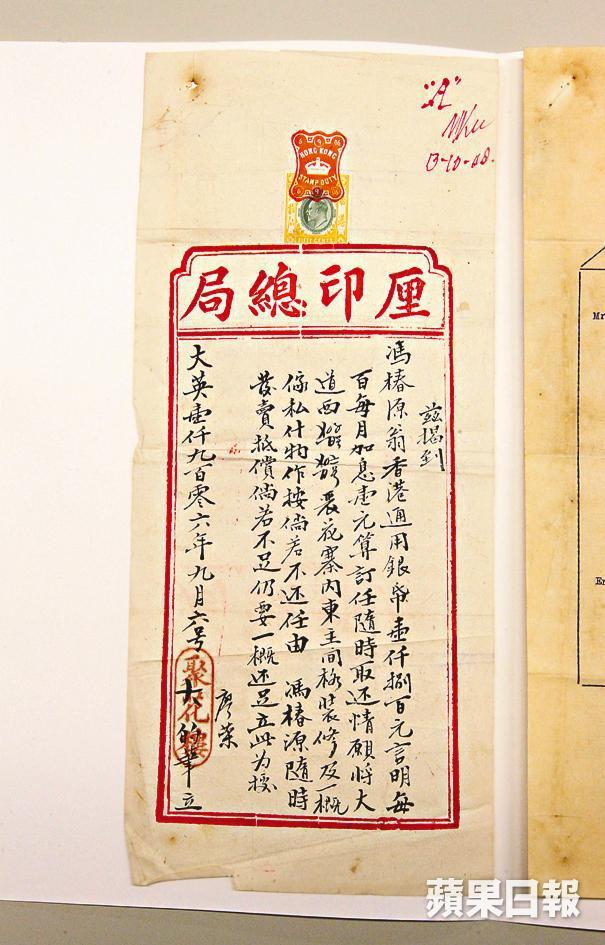 "A"
13-10-08.
HONG KONG
STAMP DUTY
厘印總局
茲揭到
馮椿源翁香港通用銀幣壹仟捌百元言明每
百每月加息壹元算訂任隨時取还情願將大
道西花寨内東主间格裝修及一概
傢私什物作按倘若不还任由 馮椿源隨時
發賣抵償倘若不足仍要一概还足立此为據
廖荣
大英壹仟九百零六年九月六号 的筆立
聚花樓
Mr
En
蘋果日報